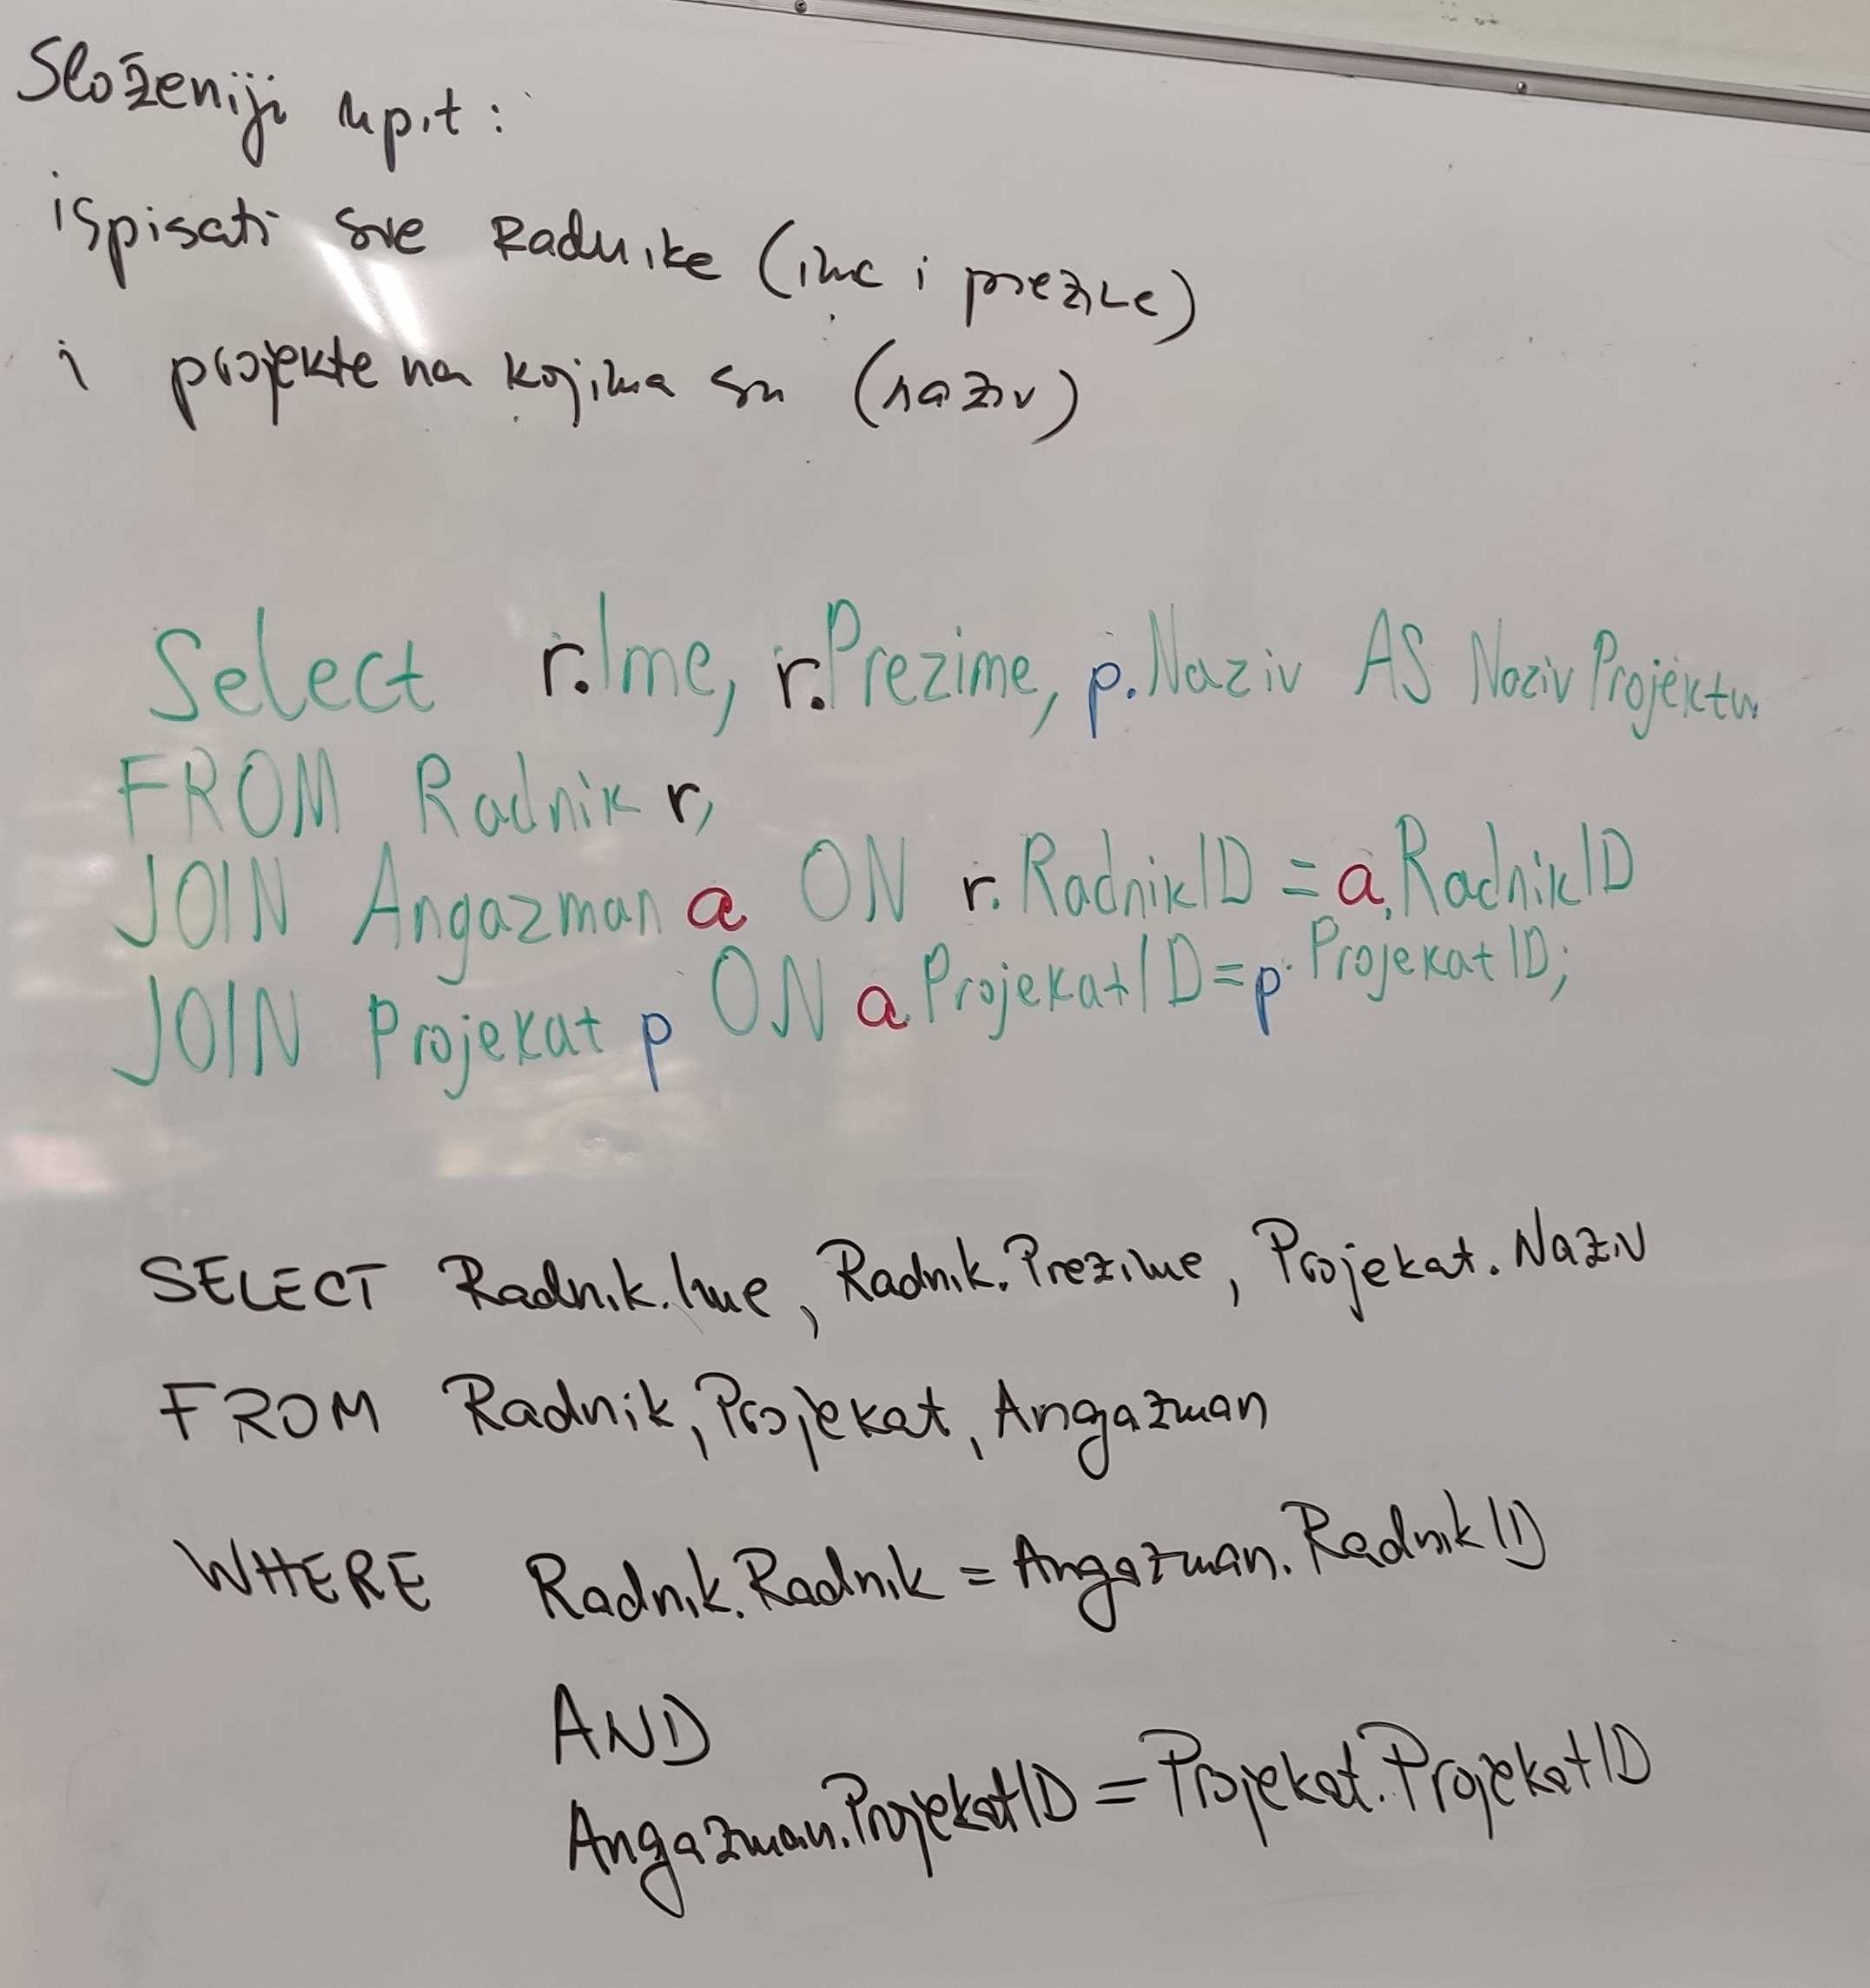 Složeniji upit:
ispisati sve Radnike (ime i prezime)
i projekte na kojima su (naziv)
Select r.Ime, r.Prezime, p.Naziv AS NazivProjekta
FROM Radnik r,
JOIN Angazman a ON r.RadnikID = a.RadnikID
JOIN Projekat p ON a.ProjekatID = p.ProjekatID;
SELECT Radnik.Ime, Radnik.Prezime, Projekat.Naziv
FROM Radnik, Projekat, Angazman
WHERE Radnik.Radnik = Angazman.RadnikID
AND
Angazman.ProjekatID = Projekat.ProjekatID